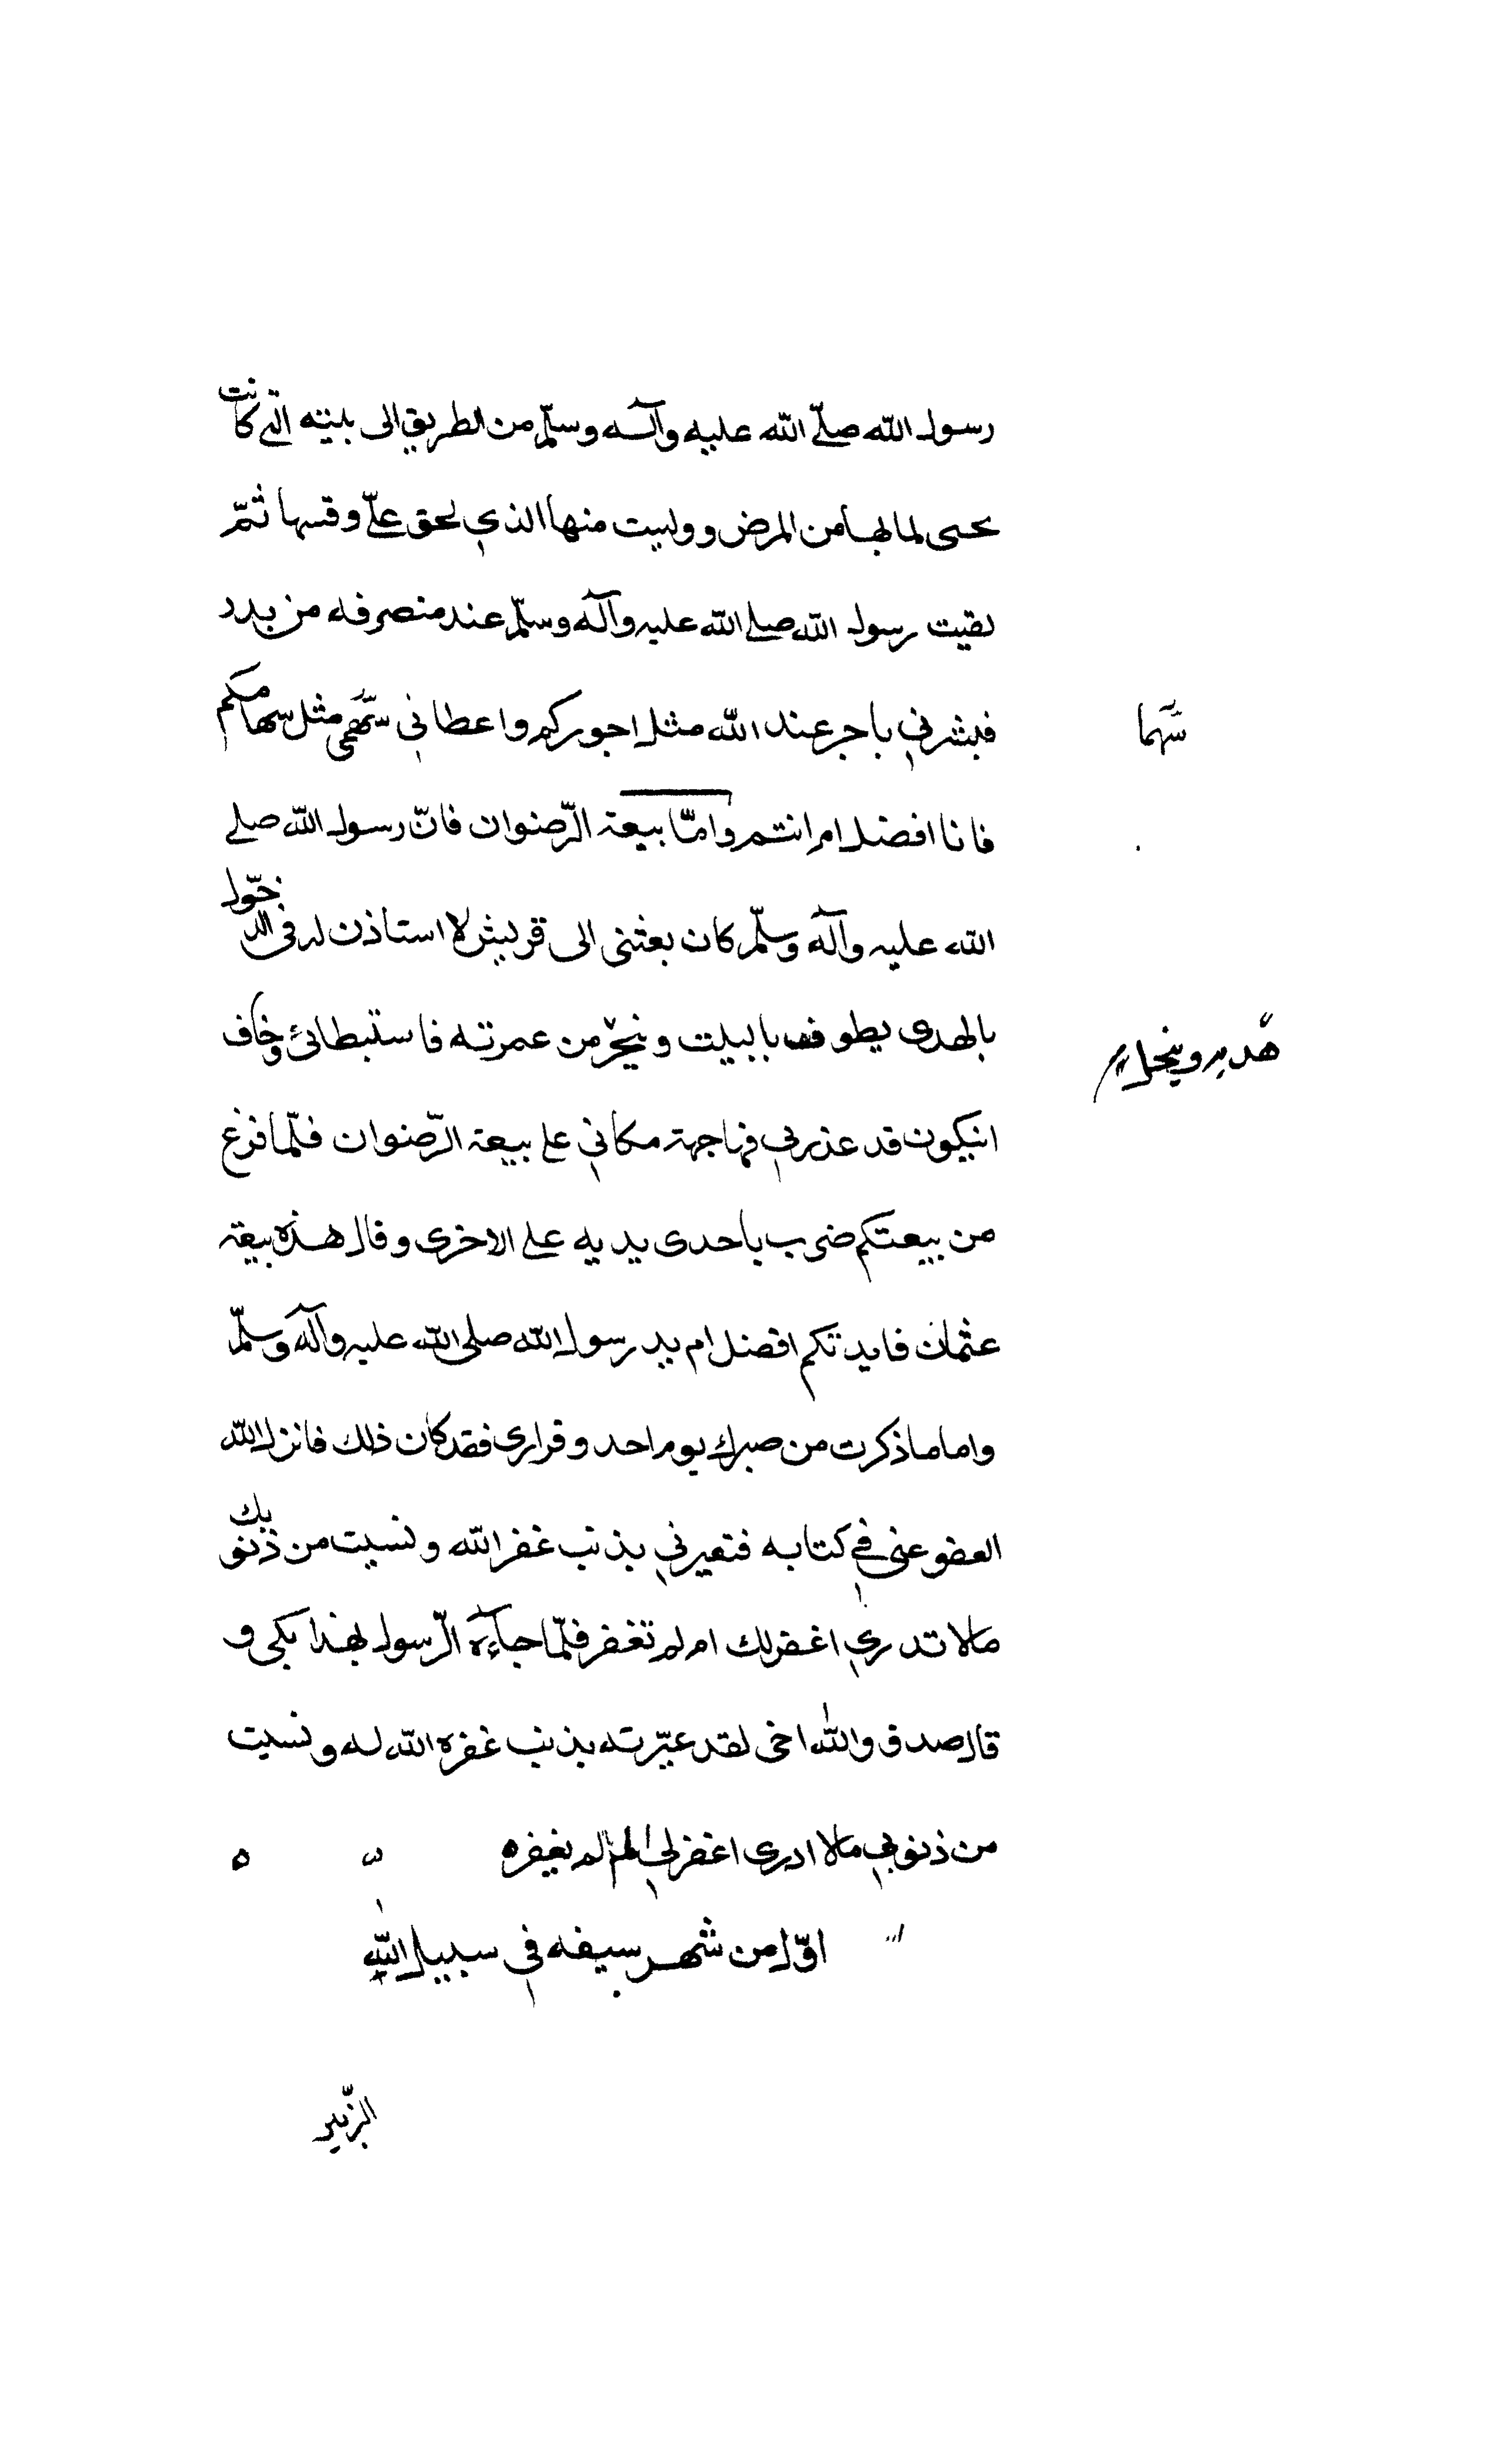 رسول الله صلّى الله عليه وآله وسلّم من الطريق الى بليته التي كانت
لما لها من المرض ووليت منها الذي لحق علىّ وقتها ثمّ
لقيت رسول الله صلى الله عليه وآله وسلّم عند منصرفه من بدر
فبشرني باجر عند الله مثل اجوركم واعطاني سهمى مثل سهامكم
سهما
فانا افضل ام انتم وامّا بيعة الرّضوان فانّ رسول الله صلى
الله عليه وآله وسلّم كان بعثنى الى قريش لاستاذن له فى الدخول
بالهدى يطوف بالبيت وينحر من عمرته فاستبطانى وخاف
هديه وينحل
انيكون قد عذر بي مكاني على بيعة الرّضوان فلمّا فرغ
من بيعتكم ضرب باحدى يديه على الاخرى وقال هذه بيعة
عثمان فايديكم افضل ام يد رسول الله صلى الله عليه وآله وسلّم
واما ما ذكرت من صبرك يوم احد وفرارى فقد كان ذلك فانزل الله
العفو عنى في كتابه فتعيرني بذنب غفر الله ونسيت من ذنوبك
مالا تدري اغفر لك ام لم تغفر فلمّا جاءه الرّسول بهذا بكى و
قال صدق والله اخى لقد عيّرته بذنب غفره الله له ونسيت
من ذنوبي مالا ادرى اغفر لي ام لم يغفره
اوّل من شهر سيفه في سبيل الله
الزّبير